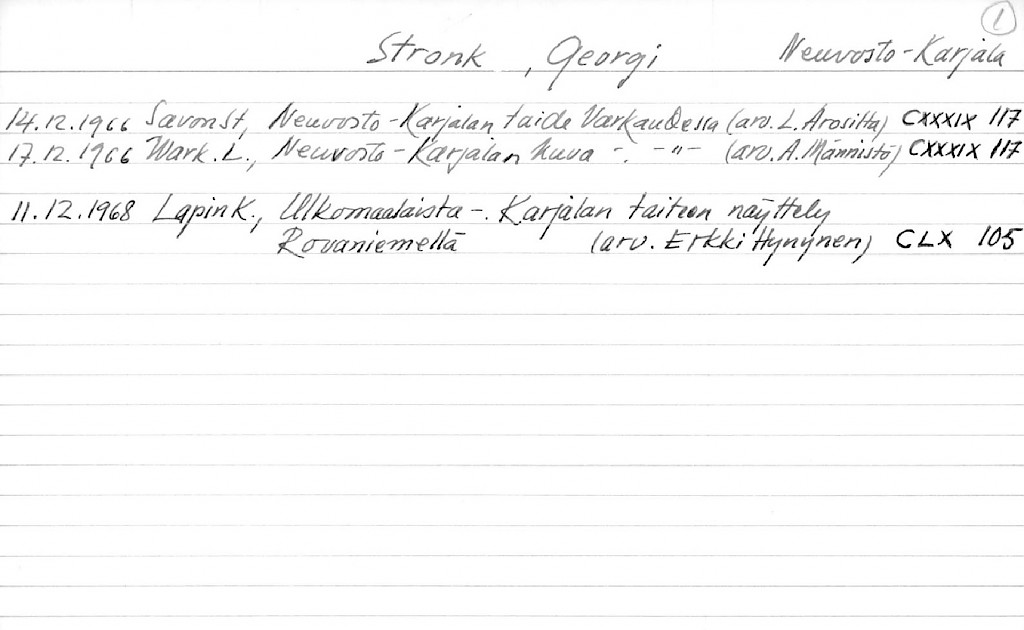 1
Stronk, Georgi Neuvosto-Karjala
14.12.1966 SavonSt, Neuvosto-Karjalan taide Varkaudessa (arv. L. Arosilta) CXXXIX 117
17.12.1966 Wark. L., Neuvosto-Karjalan kuva -. -"- (arv. A. Männistö) CXXXIX 117
11.12.1968 Lapin K., Ulkomaalaista -. Karjalan taiteen näyttely
Rovaniemellä (arv. Erkki Hynynen) CLX 105